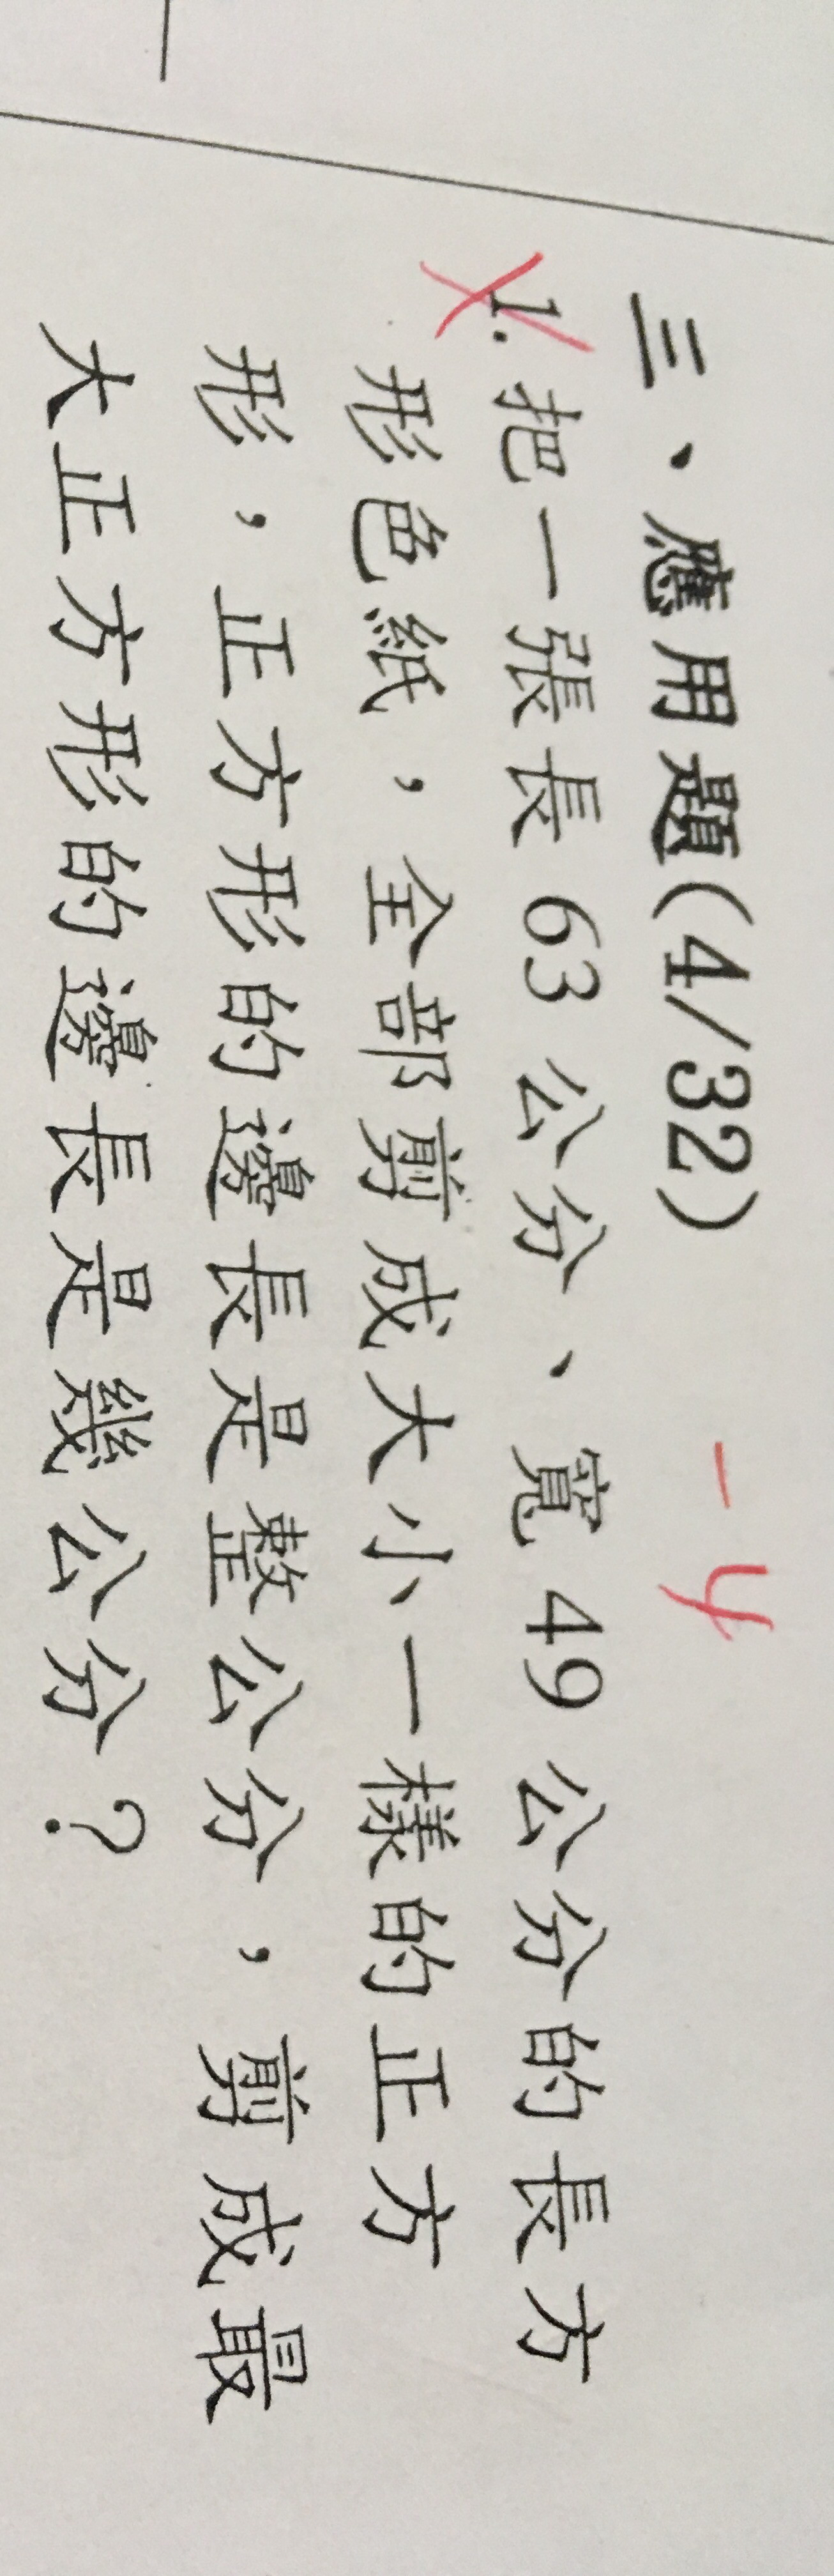 三、應用題(4/32) -4
1. 把一張長 63 公分、寬 49 公分的長方
形色紙，全部剪成大小一樣的正方
形，正方形的邊長是整公分，剪成最
大正方形的邊長是幾公分？